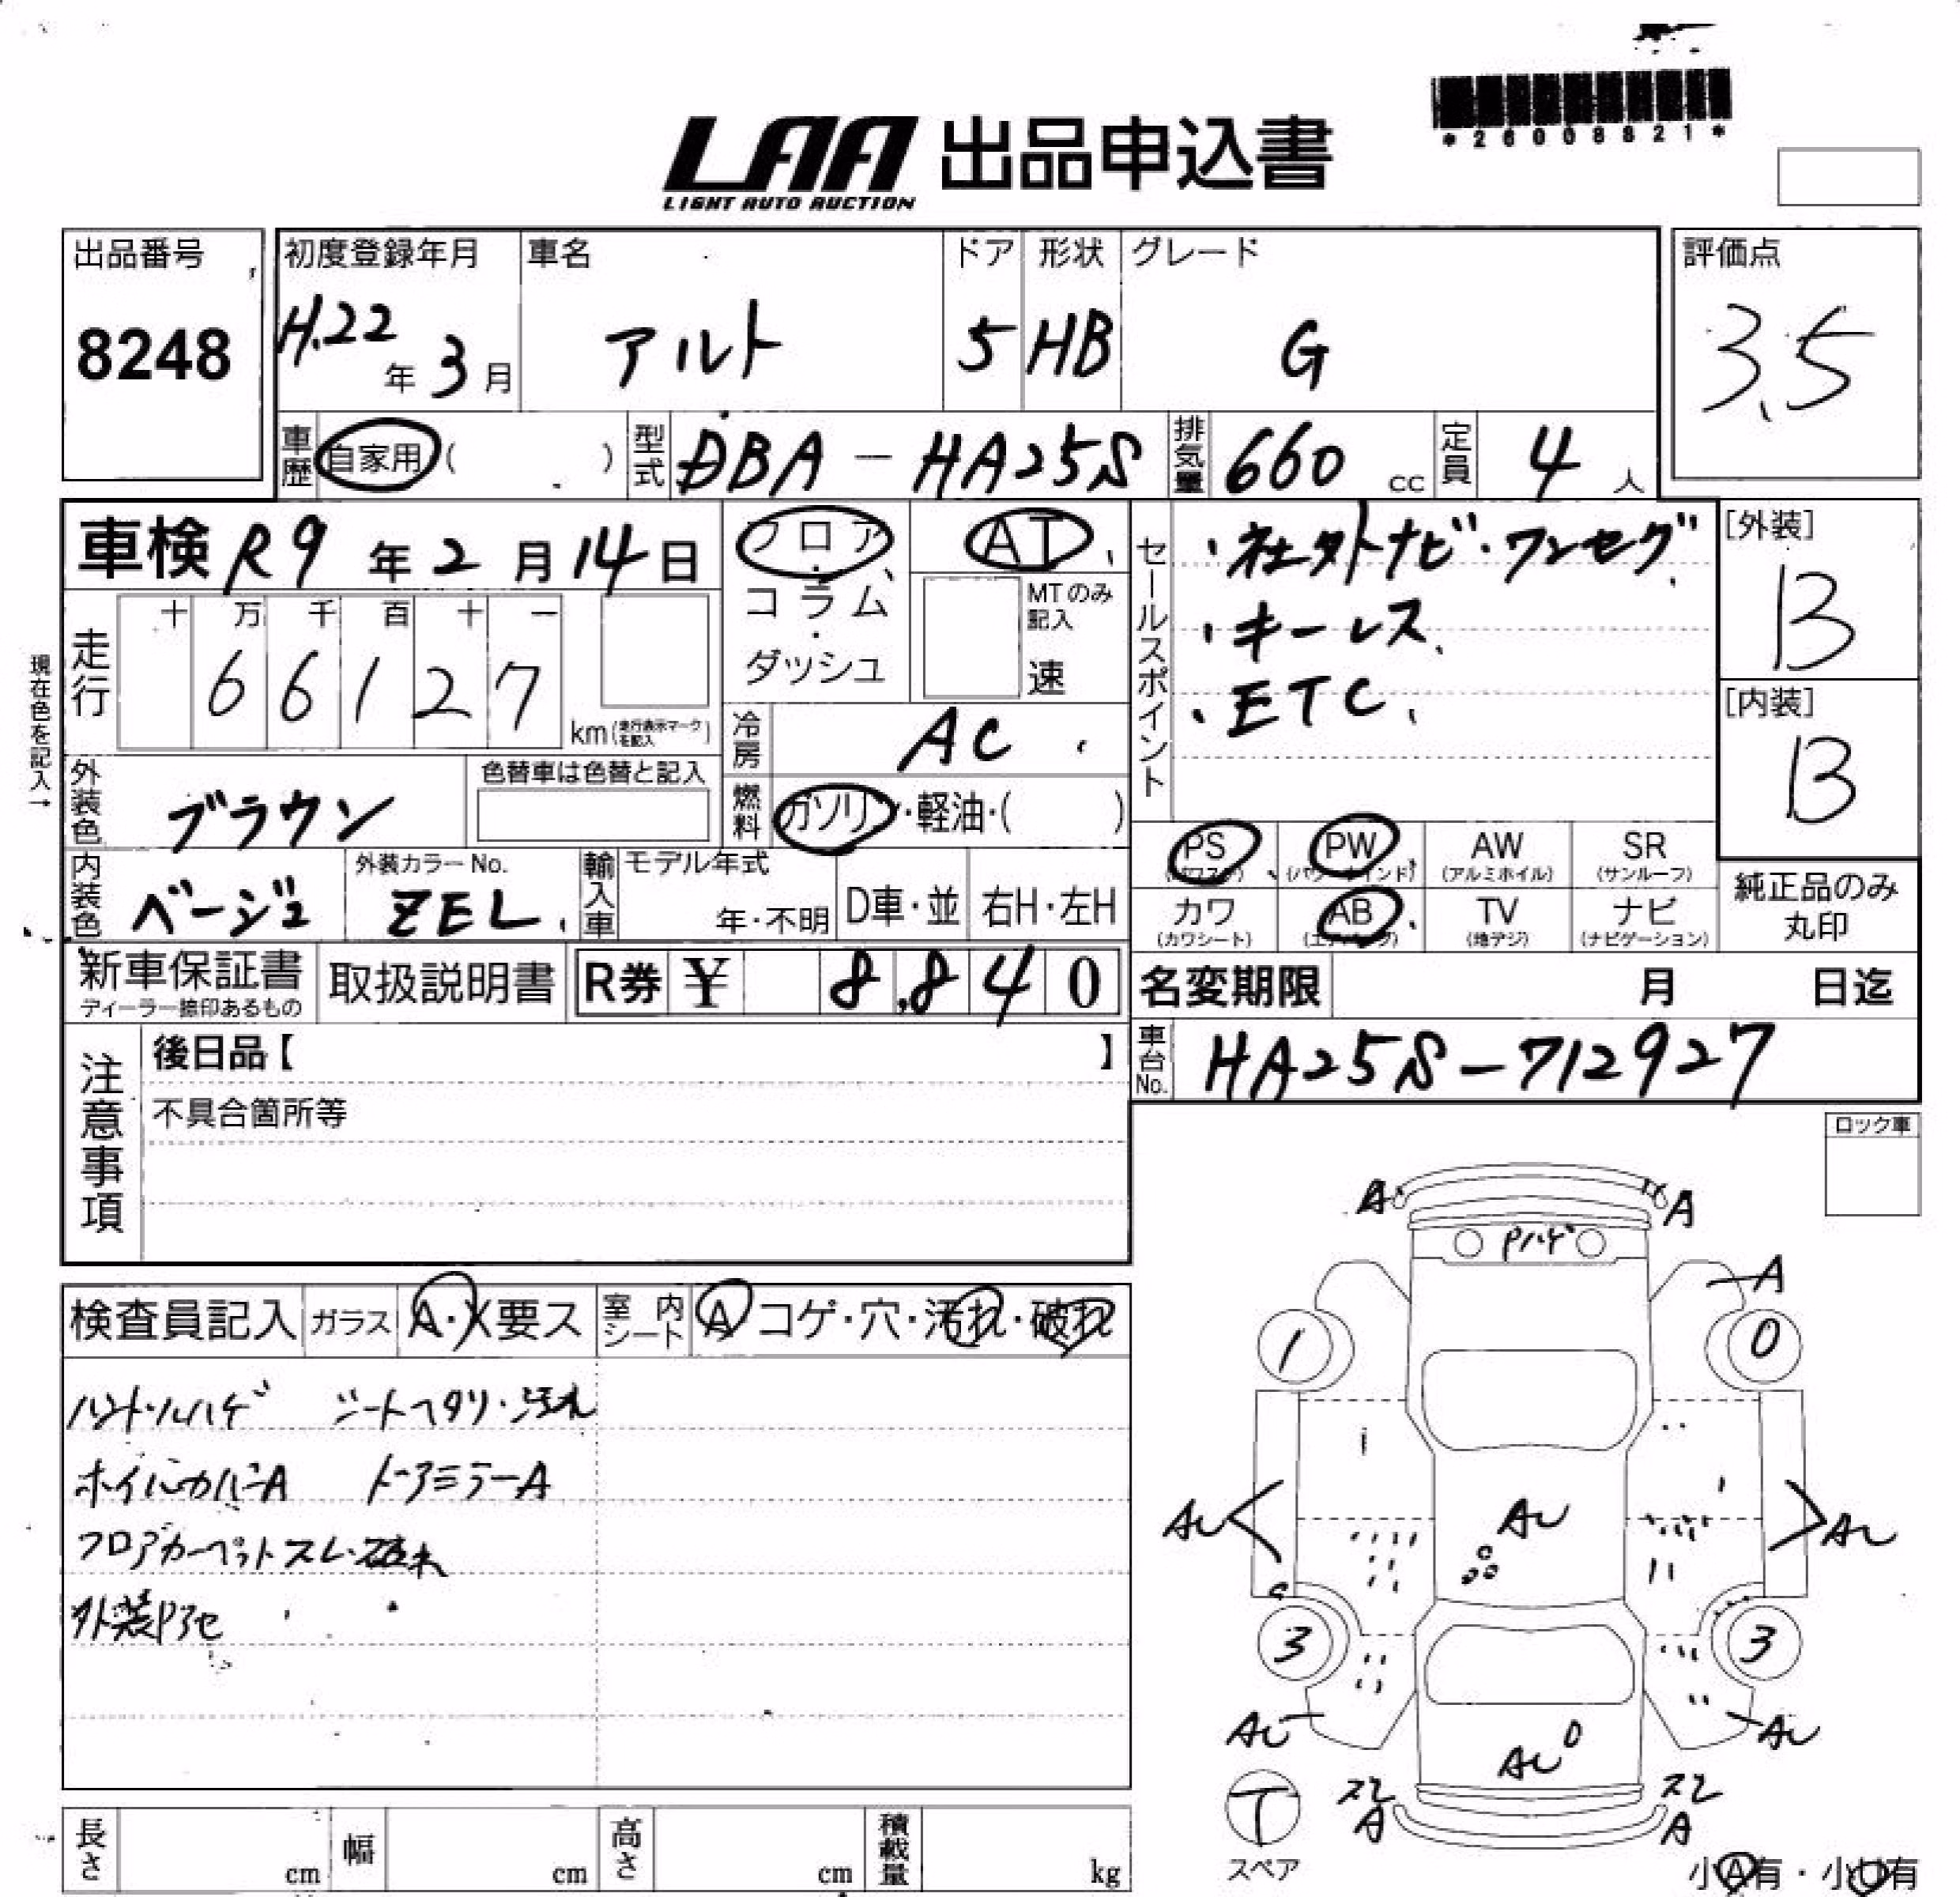 *26008821*
LAA 出品申込書
LIGHT AUTO AUCTION
出品番号
8248
初度登録年月
H.22年3月
車名
アルト
ドア
5
形状
HB
グレード
G
評価点
3.5
車歴 自家用( )
型式 DBA-HA25S
排気量 660cc
定員 4人
車検 R9年2月14日
フロア・コラム・ダッシュ
AT
MTのみ記入
速
セールスポイント
・社外ナビ・ワンセグ
・キーレス
・ETC
[外装]
B
[内装]
B
現在色を記入→
走行
十 万 千 百 十 一
66127
km(走行表示マークを記入)
冷房 AC
外装色 ブラウン
色替車は色替と記入
燃料 ガソリン・軽油・( )
PS
(パワステ)
PW
(パワーウインド)
AW
(アルミホイル)
SR
(サンルーフ)
内装色 ベージュ
外装カラーNo.
ZEL
輸入車
モデル年式
年・不明
D車・並
右H・左H
カワ
(カワシート)
AB
(エアバッグ)
TV
(地デジ)
ナビ
(ナビゲーション)
純正品のみ
丸印
新車保証書
ディーラー捺印あるもの
取扱説明書
R券 ¥ 8,840
名変期限 月 日迄
車台No. HA25S-712927
注意事項
後日品【 】
不具合箇所等
ロック車
検査員記入
ガラス A・X要ス
室内シート A コゲ・穴・汚れ・破れ
ハンドルハゲ シートヘタリ・汚れ
ホイルカバーA ドアミラーA
フロアカーペットスレ・破れ
外装Pアセ
A A
Pハゲ
A
1 0
AU AU AU
3 3
AU AU
AU
T
スペア
スレ
A
スレ
A
小A有・小U有
長さ cm
幅 cm
高さ cm
積載量 kg